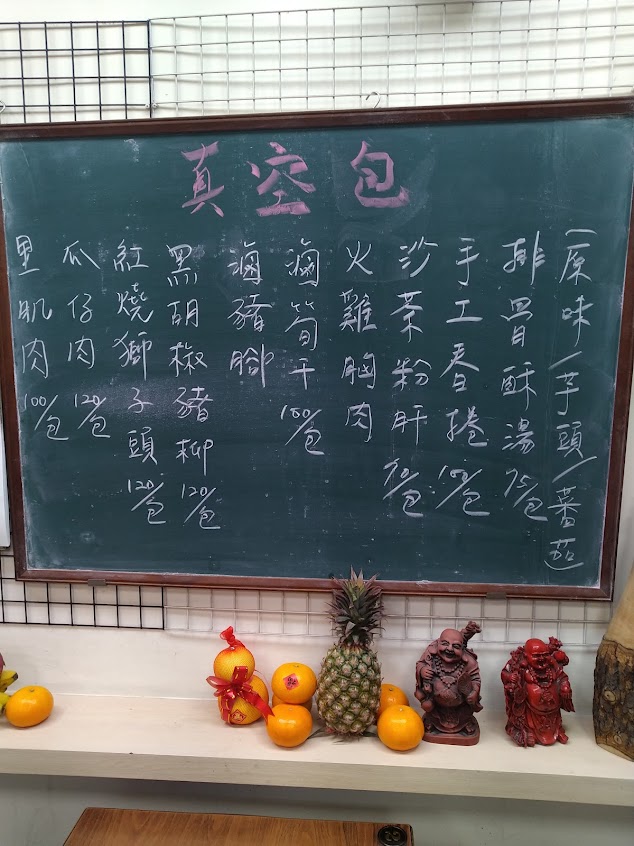 真空包
(原味/芋頭/蕃茄)
排骨酥湯 75/包
手工春捲 100/包
沙茶粉肝 70/包
火雞胸肉
滷筍干 100/包
滷豬腳
黑胡椒豬柳 120/包
紅燒獅子頭 120/包
瓜仔肉 120/包
里肌肉 100/包